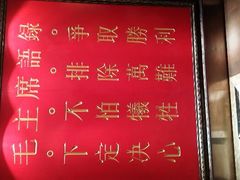 毛主席語録
下定决心
不怕犧牲
排除萬難
爭取勝利